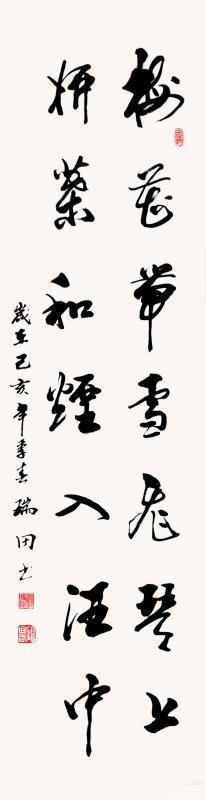 梅花帶雪飛琴上
柳葉和煙入酒中
歲在己亥年季春 瑞田书